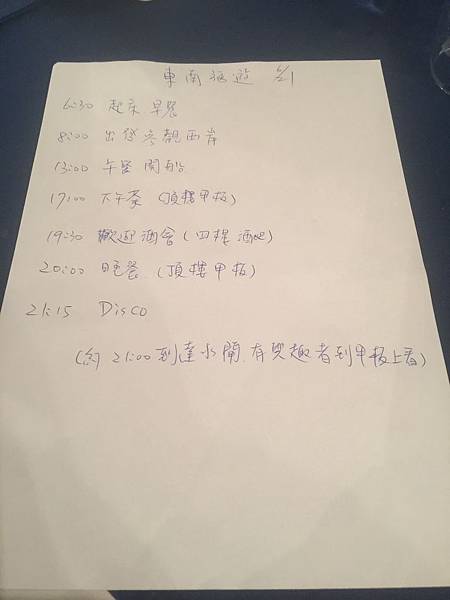 東南旅遊 6/1
6:30 起床 早餐
8:00 出發參觀西岸
13:00 午餐 開船
17:00 下午茶 (頂樓甲板)
19:30 歡迎酒會 (四樓酒吧)
20:00 晚餐 (頂樓甲板)
21:15 DISCO
(約 21:00 到達水閘, 有興趣者到甲板上看)